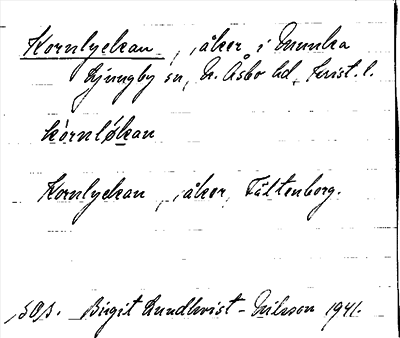 Kornlyckan, åker i Munka
Ljungby sn, N. Åsbo hd, Krist. l.
kòrnløkan
Kornlyckan, åker, Tåstenborg.
SOS. Birgit Lundkvist-Nilsson 1941.